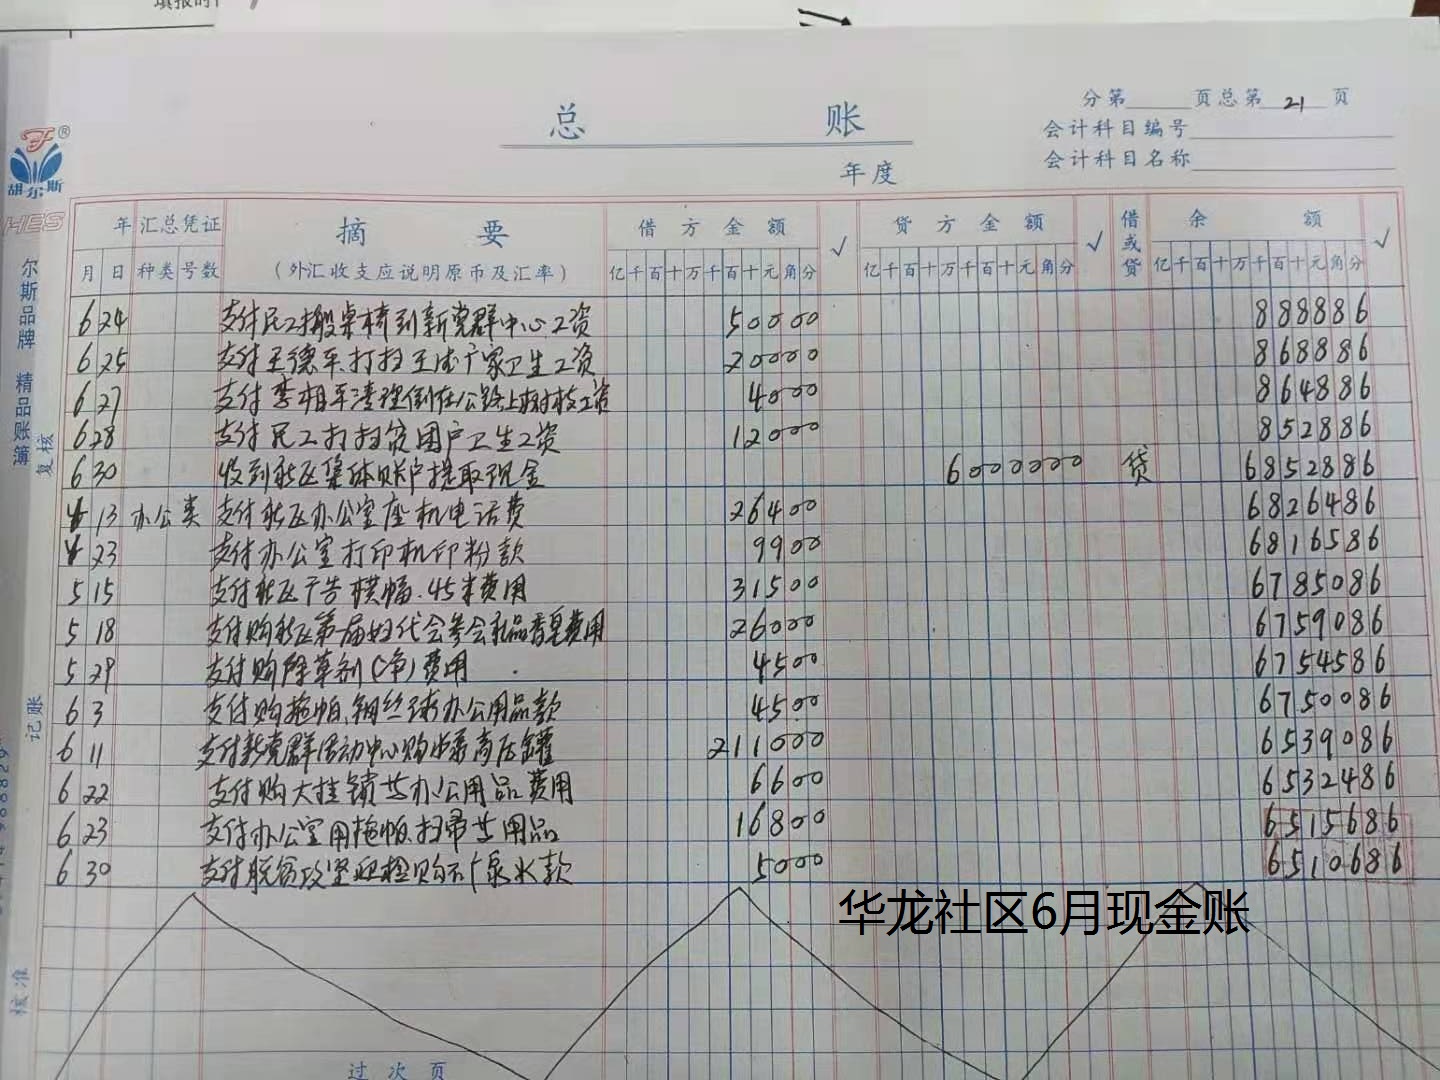 填报时
总 账
年度
分第 页总第 21 页
会计科目编号
会计科目名称
胡尔斯
HES
尔斯品牌 精品账簿
复核
记账
核准
年 汇总凭证 摘 要 借方金额 √ 贷方金额 √ 借或贷 余 额 √
月 日 种类 号数 (外汇收支应说明原币及汇率) 亿千百十万千百十元角分 亿千百十万千百十元角分 亿千百十万千百十元角分
6 24 支付民工搬桌椅到新党群中心工资 50000 888886
6 25 支付王德车打扫王 广家卫生工资 20000 868886
6 27 支付李相平清理倒在公路上树枝工资 4000 864886
6 28 支付民工打扫贫困户卫生工资 12000 852886
6 30 收到社区集体账户提取现金 6000000 贷 6852886
13 办公类 支付社区办公室座机电话费 26400 6826486
23 支付办公室打印机印粉款 9900 6816586
5 15 支付社区广告横幅.45米费用 31500 6785086
5 18 支付购社区第一届妇代会参会 品 费用 26000 6759086
5 29 支付购除草剂(净)费用 4500 6754586
6 3 支付购拖帕、钢丝球办公用品款 4500 6750086
6 11 支付新党群活动中心购水泵高压罐 211000 6539086
6 22 支付购大挂锁等办公用品费用 6600 6532486
6 23 支付办公室用拖帕.扫帚等用品 16800 6515686
6 30 支付脱贫攻坚迎检购 泉水款 5000 6510686
华龙社区6月现金账
过次页